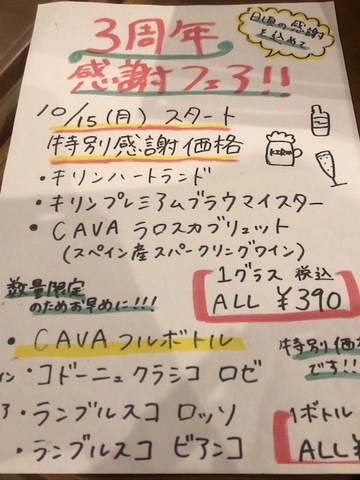 日頃の感謝
を込めて
3周年
感謝フェア!!
10/15(月) スタート
特別感謝価格
・キリンハートランド
・キリンプレミアムブラウマイスター
・CAVA ラロスカブリュット
(スペイン産スパークリングワイン)
数量限定
のためお早めに!!!
1グラス 税込
ALL ¥390
・CAVAフルボトル
特別価
です!!
・コドーニュクラシコ ロゼ
・ランブルスコ ロッソ
・ランブルスコ ビアンコ
1ボトル
ALL¥